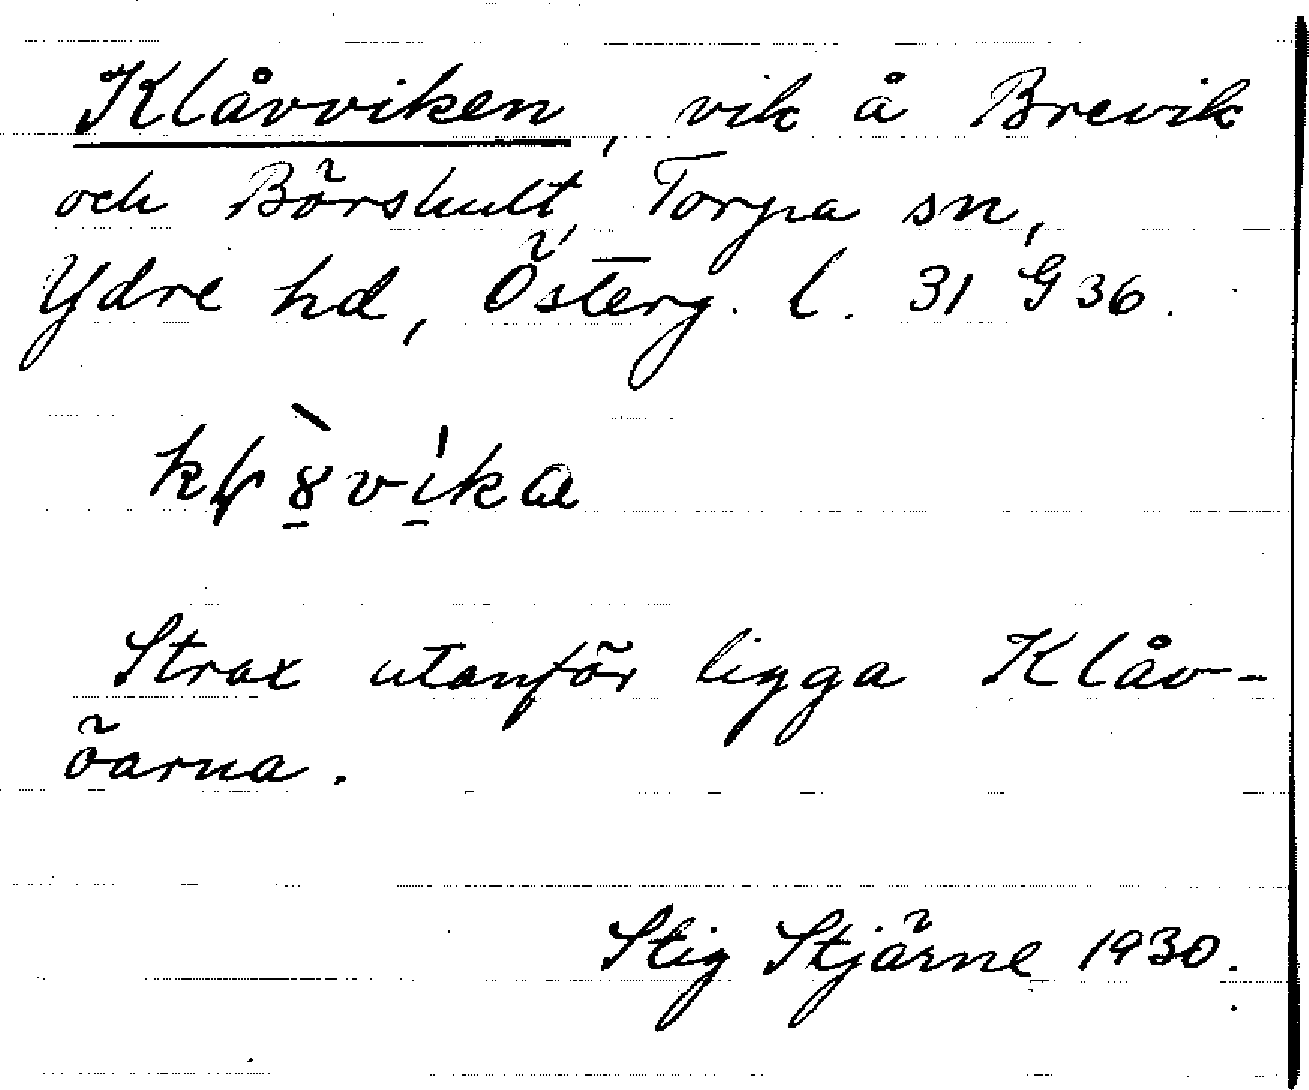 Klåvviken, vik å Brevik
och Börshult, Torpa sn,
Ydre hd, Österg. l. 31 G 36.
Strax utanför ligga Klåv-
öarna.
Stig Stjärne 1930.